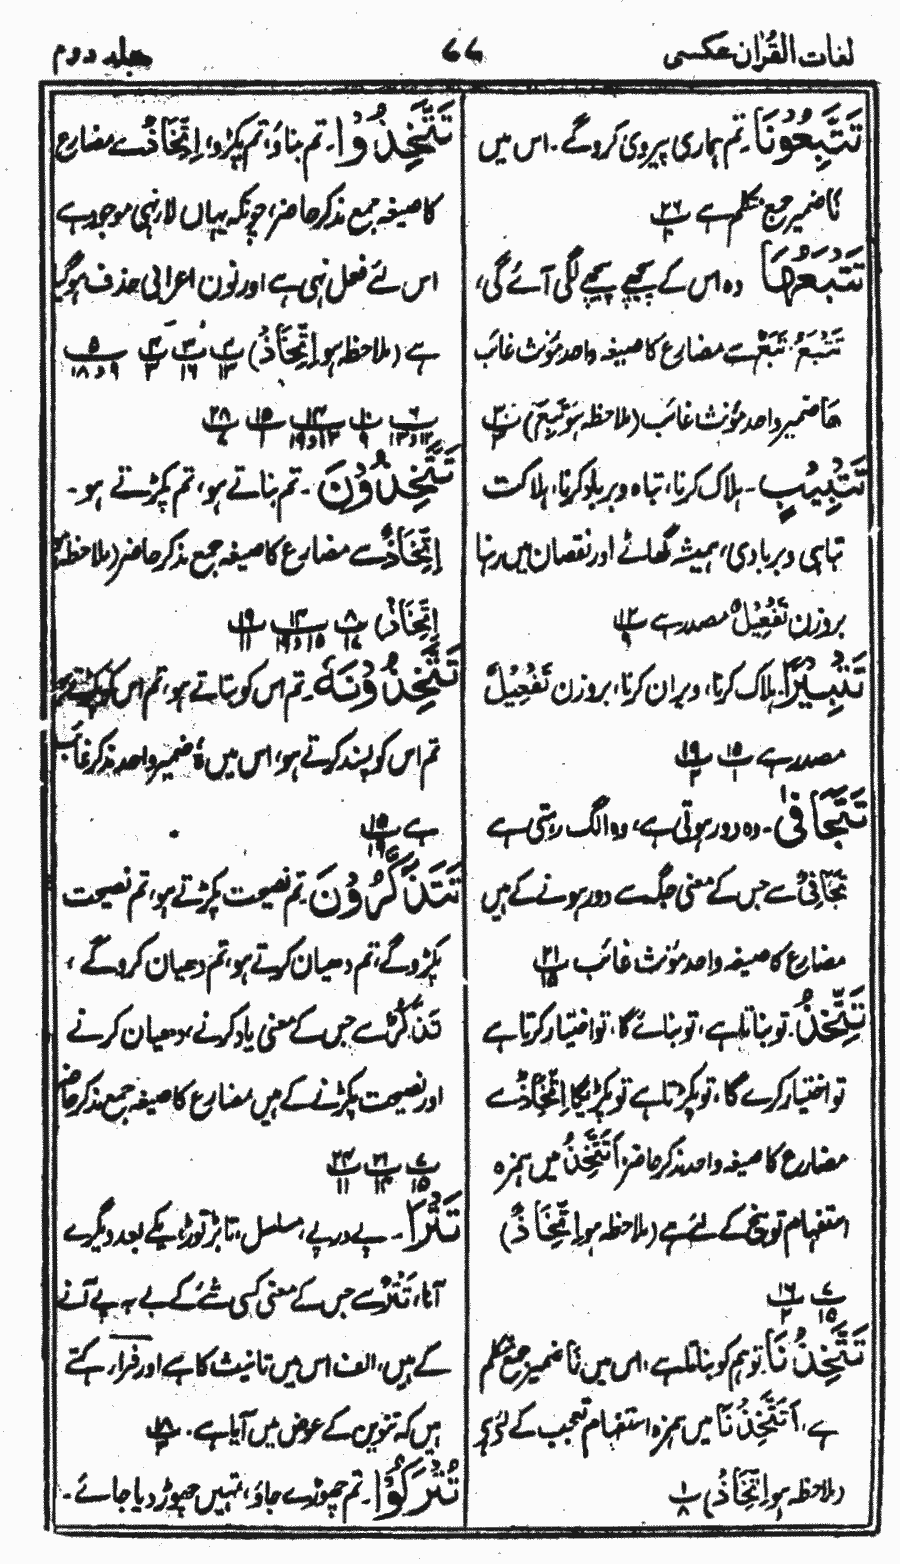 لغات القرآن عکسی
۷۷
جلد دوم
تَتَّبِعُوْنَا۔ تم ہماری پیروی کروگے۔ اس میں
نَا ضمیر جمع متکلم ہے
تَتْبَعُهَا وہ اس کے پیچھے پیچھے لگی آئے گی،
تَتْبَعُ تَبَعٌ سے مضارع کا صیغہ واحد مؤنث غائب
هَا ضمیر واحد مؤنث غائب (ملاحظہ ہو تَبِعَ)
تَتْبِيْبٍ۔ ہلاک کرنا، تباہ و برباد کرنا، ہلاکت
تباہی و بربادی، ہمیشہ گھاٹے اور نقصان میں رہنا
بروزن تَفْعِيْلٌ مصدر ہے ۱۲/۹
تَتْبِيْرًا۔ ہلاک کرنا، ویران کرنا، بروزن تَفْعِيْلٌ
مصدر ہے ۱۵/۱ ۱۹/۲
تَتَجَافٰى۔ وہ دور ہوتی ہے، وہ الگ رہتی ہے
تَجَافِيٌ سے جس کے معنی جگہ سے دور ہونے کے ہیں
مضارع کا صیغہ واحد مؤنث غائب ۲۱/۱۵
تَتَّخِذُ۔ تو بناتا ہے، تو بنائے گا، تو اختیار کرتا ہے
تو اختیار کرے گا، تو پکڑتا ہے تو پکڑیگا اِتِّخَاذٌ سے
مضارع کا صیغہ واحد مذکر حاضر، اَتَتَّخِذُ میں ہمزہ
استفہام توبیخ کے لئے ہے (ملاحظہ ہو اِتِّخَاذٌ)
۷/۱۵ ۱۶/۲
تَتَّخِذُنَا۔ تو ہم کو بناتا ہے، اس میں نَا ضمیر جمع متکلم
ہے، اَتَتَّخِذُنَا میں ہمزہ استفہام تعجب کے لئے ہے
(ملاحظہ ہو اِتِّخَاذٌ) ۱/۸
تَتَّخِذُوْا۔ تم بناؤ، تم پکڑو، اِتِّخَاذٌ سے مضارع
کا صیغہ جمع مذکر حاضر، چونکہ یہاں لا نہی موجود ہے
اس لئے فعل نہی ہے اور نون اعرابی حذف ہوگیا
ہے (ملاحظہ ہو اِتِّخَاذٌ)
تَتَّخِذُوْنَ۔ تم بناتے ہو، تم پکڑتے ہو۔
اِتِّخَاذٌ سے مضارع کا صیغہ جمع مذکر حاضر (ملاحظہ ہو
اِتِّخَاذٌ)
تَتَّخِذُوْنَهٗ۔ تم اس کو بناتے ہو، تم اس کو پکڑتے ہو
تم اس کو پسند کرتے ہو، اس میں هٗ ضمیر واحد مذکر غائب
ہے ۱۵/۱۹
تَتَذَكَّرُوْنَ تم نصیحت پکڑتے ہو، تم نصیحت
پکڑوگے، تم دھیان کرتے ہو، تم دھیان کروگے،
تَذَكُّرٌ سے جس کے معنی یاد کرنے، دھیان کرنے
اور نصیحت پکڑنے کے ہیں مضارع کا صیغہ جمع مذکر حاضر
۷/۱۵ ۲۱/۱۴ ۲۴/۱۱
تَتْرًا۔ پے در پے، مسلسل، تابڑ توڑ، یکے بعد دیگرے
آنا، تَتْرٌ سے جس کے معنی کسی شئے کے پے بہ پے آنے
کے ہیں، الف اس میں تانیث کا ہے اور فرار کہتے
ہیں کہ تنوین کے عوض میں آیا ہے۔ ۱۸/۳
تُتْرَكُوْا۔ تم چھوڑے جاؤ، تمہیں چھوڑ دیا جائے۔